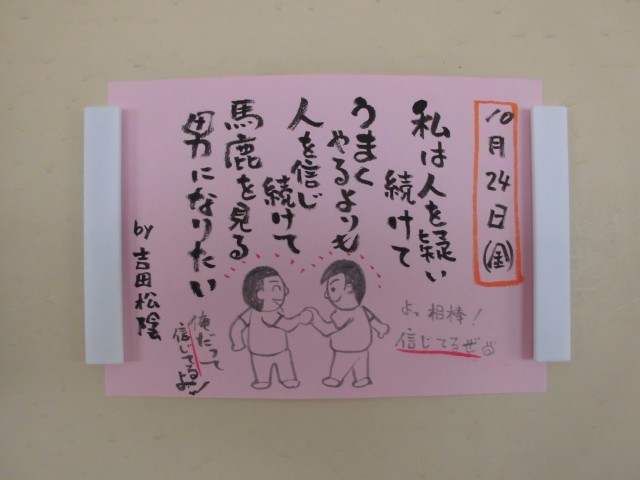 10月24日(金)
私は人を疑い
続けて
うまく
やるよりも
人を信じ
続けて
馬鹿を見る
男になりたい
by 吉田松陰
よっ相棒!
信じてるぜ
俺だって
信じてる
よ